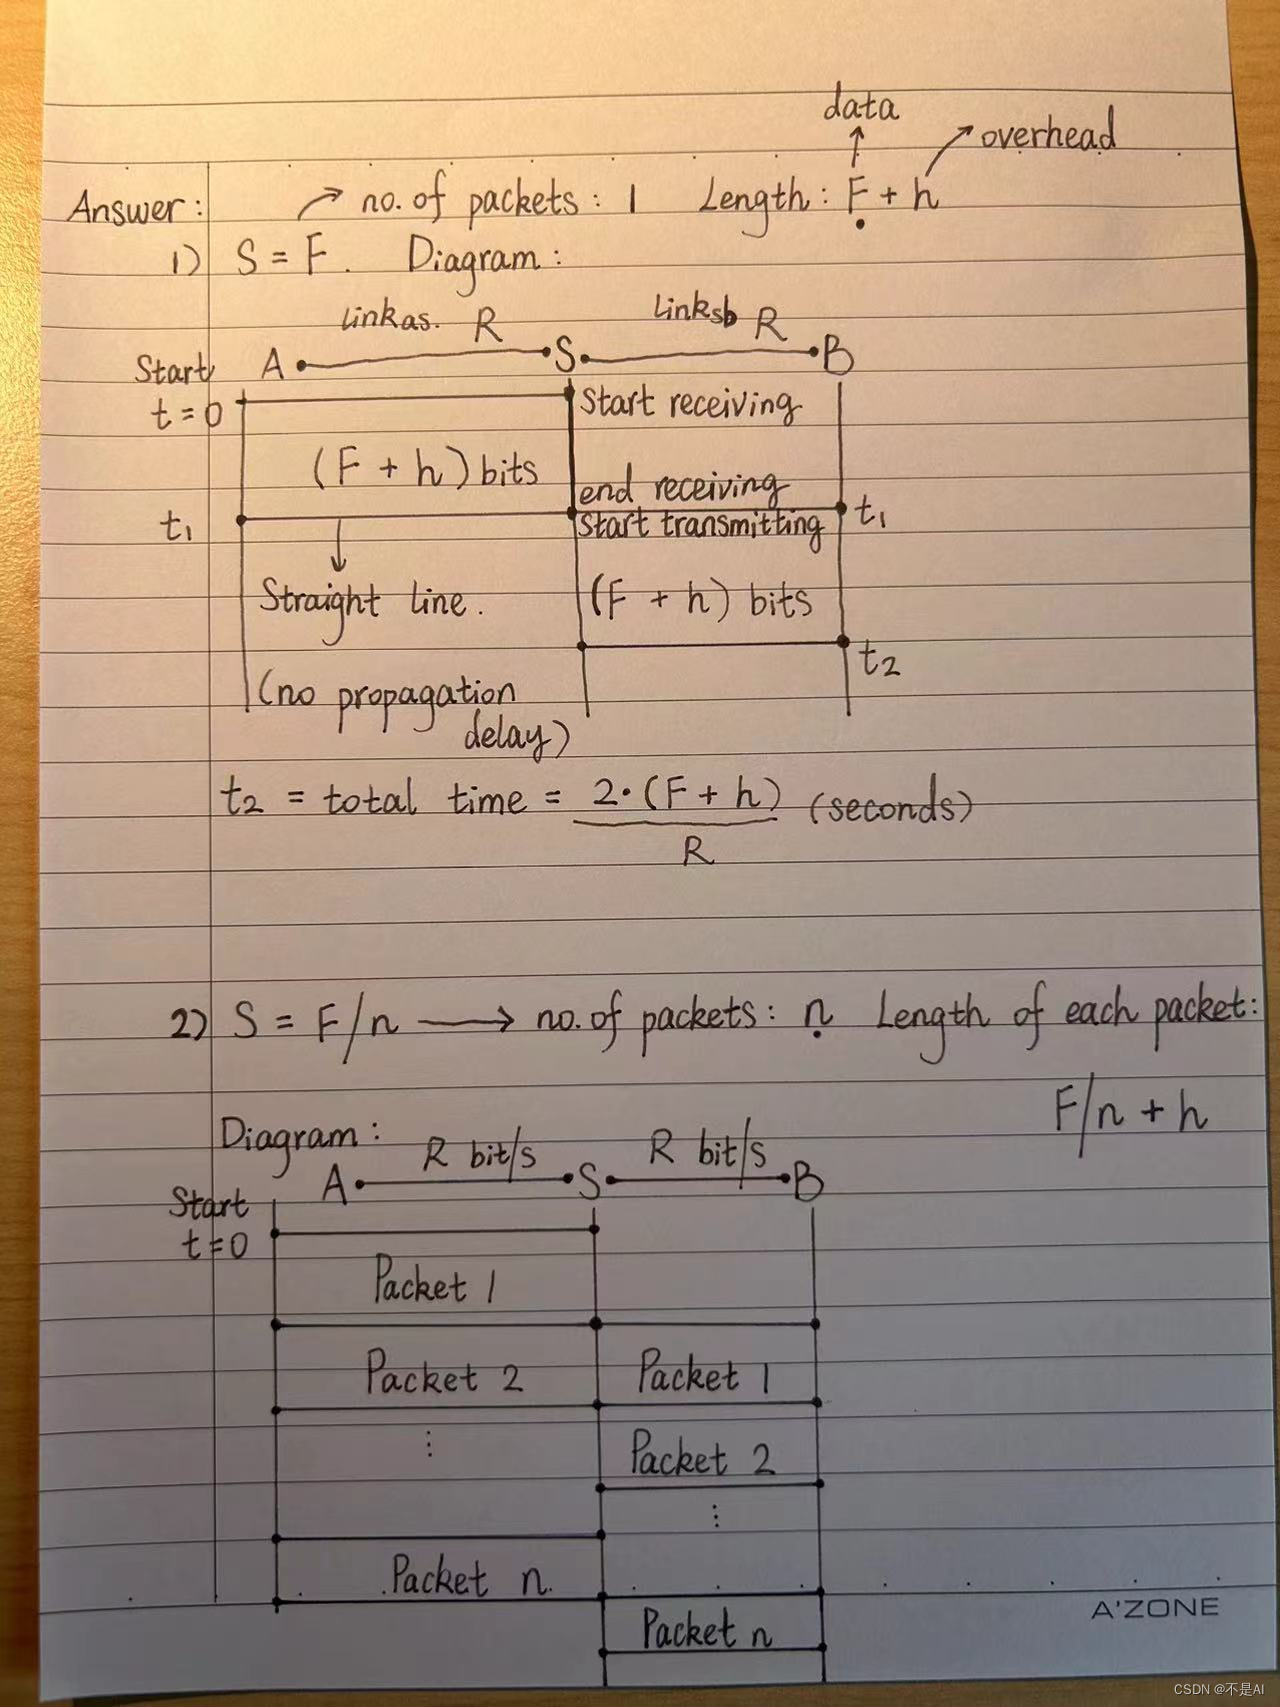 data
overhead
Answer: no. of packets: 1 Length: F + h
1) S = F. Diagram:
Linkas. R Linksb R
Start A S B
t = 0 Start receiving
(F + h) bits
end receiving
t1 Start transmitting t1
Straight line. (F + h) bits
t2
(no propagation
delay)
t2 = total time = 2·(F + h) (seconds)
R
2) S = F/n → no. of packets: n Length of each packet:
F/n + h
Diagram:
R bit/s R bit/s
A S B
Start
t=0
Packet 1
Packet 2 Packet 1
⋮ Packet 2
⋮
Packet n.
Packet n
A'ZONE
CSDN @不是AI